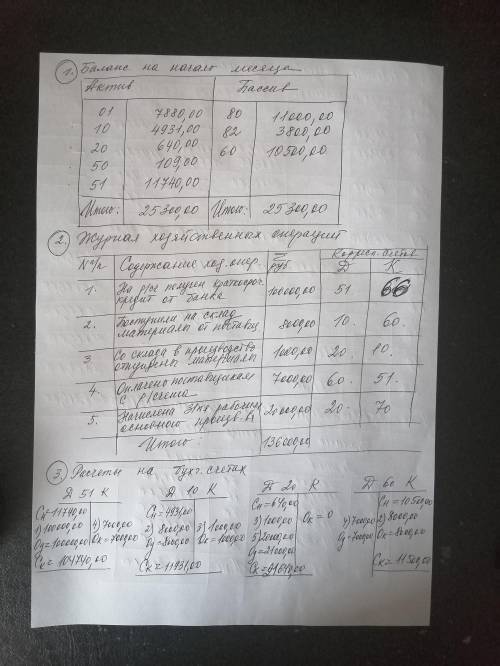 1. Баланс на начало месяца
Актив Пассив
01 7880,00 80 11000,00
10 4931,00 82 3800,00
20 640,00 60 10500,00
50 109,00
51 11740,00
Итого: 25300,00 Итого: 25300,00
2. Журнал хозяйственных операций
N п/п Содержание хоз. опер. руб Корресп. счетов
Д К
1. На р/с получен краткосроч. 100000,00 51. 66
кредит от банка
2. Поступили на склад 8000,00 10. 60.
материалы от поставщ.
3 Со склада в производство 1000,00 20. 10.
отпущены материалы
4. Оплачено поставщикам 7000,00 60. 51.
с р/счета
5. Начислена з/пл рабочим 20000,00 20. 70
основного произв. ва
Итого: 136000,00
3. Расчеты на бухг. счетах
Д 51 К Д 10 К Д 20 К Д 60 К
Сн=11740,00 Сн=4931,00 Сн=640,00 Сн=10500,00
1) 100000,00 4) 7000,00 2) 8000,00 3) 1000,00 3) 1000,00 Ок=0 4) 7000,00 2) 8000,00
Од=100000,00 Ок=7000,00 Од=8000,00 Ок=1000,00 5) 20000,00 Од=7000,00 Ок=8000,00
Од=21000,00
Ск=104740,00 Ск=11931,00 Ск=21640,00 Ск=11500,00